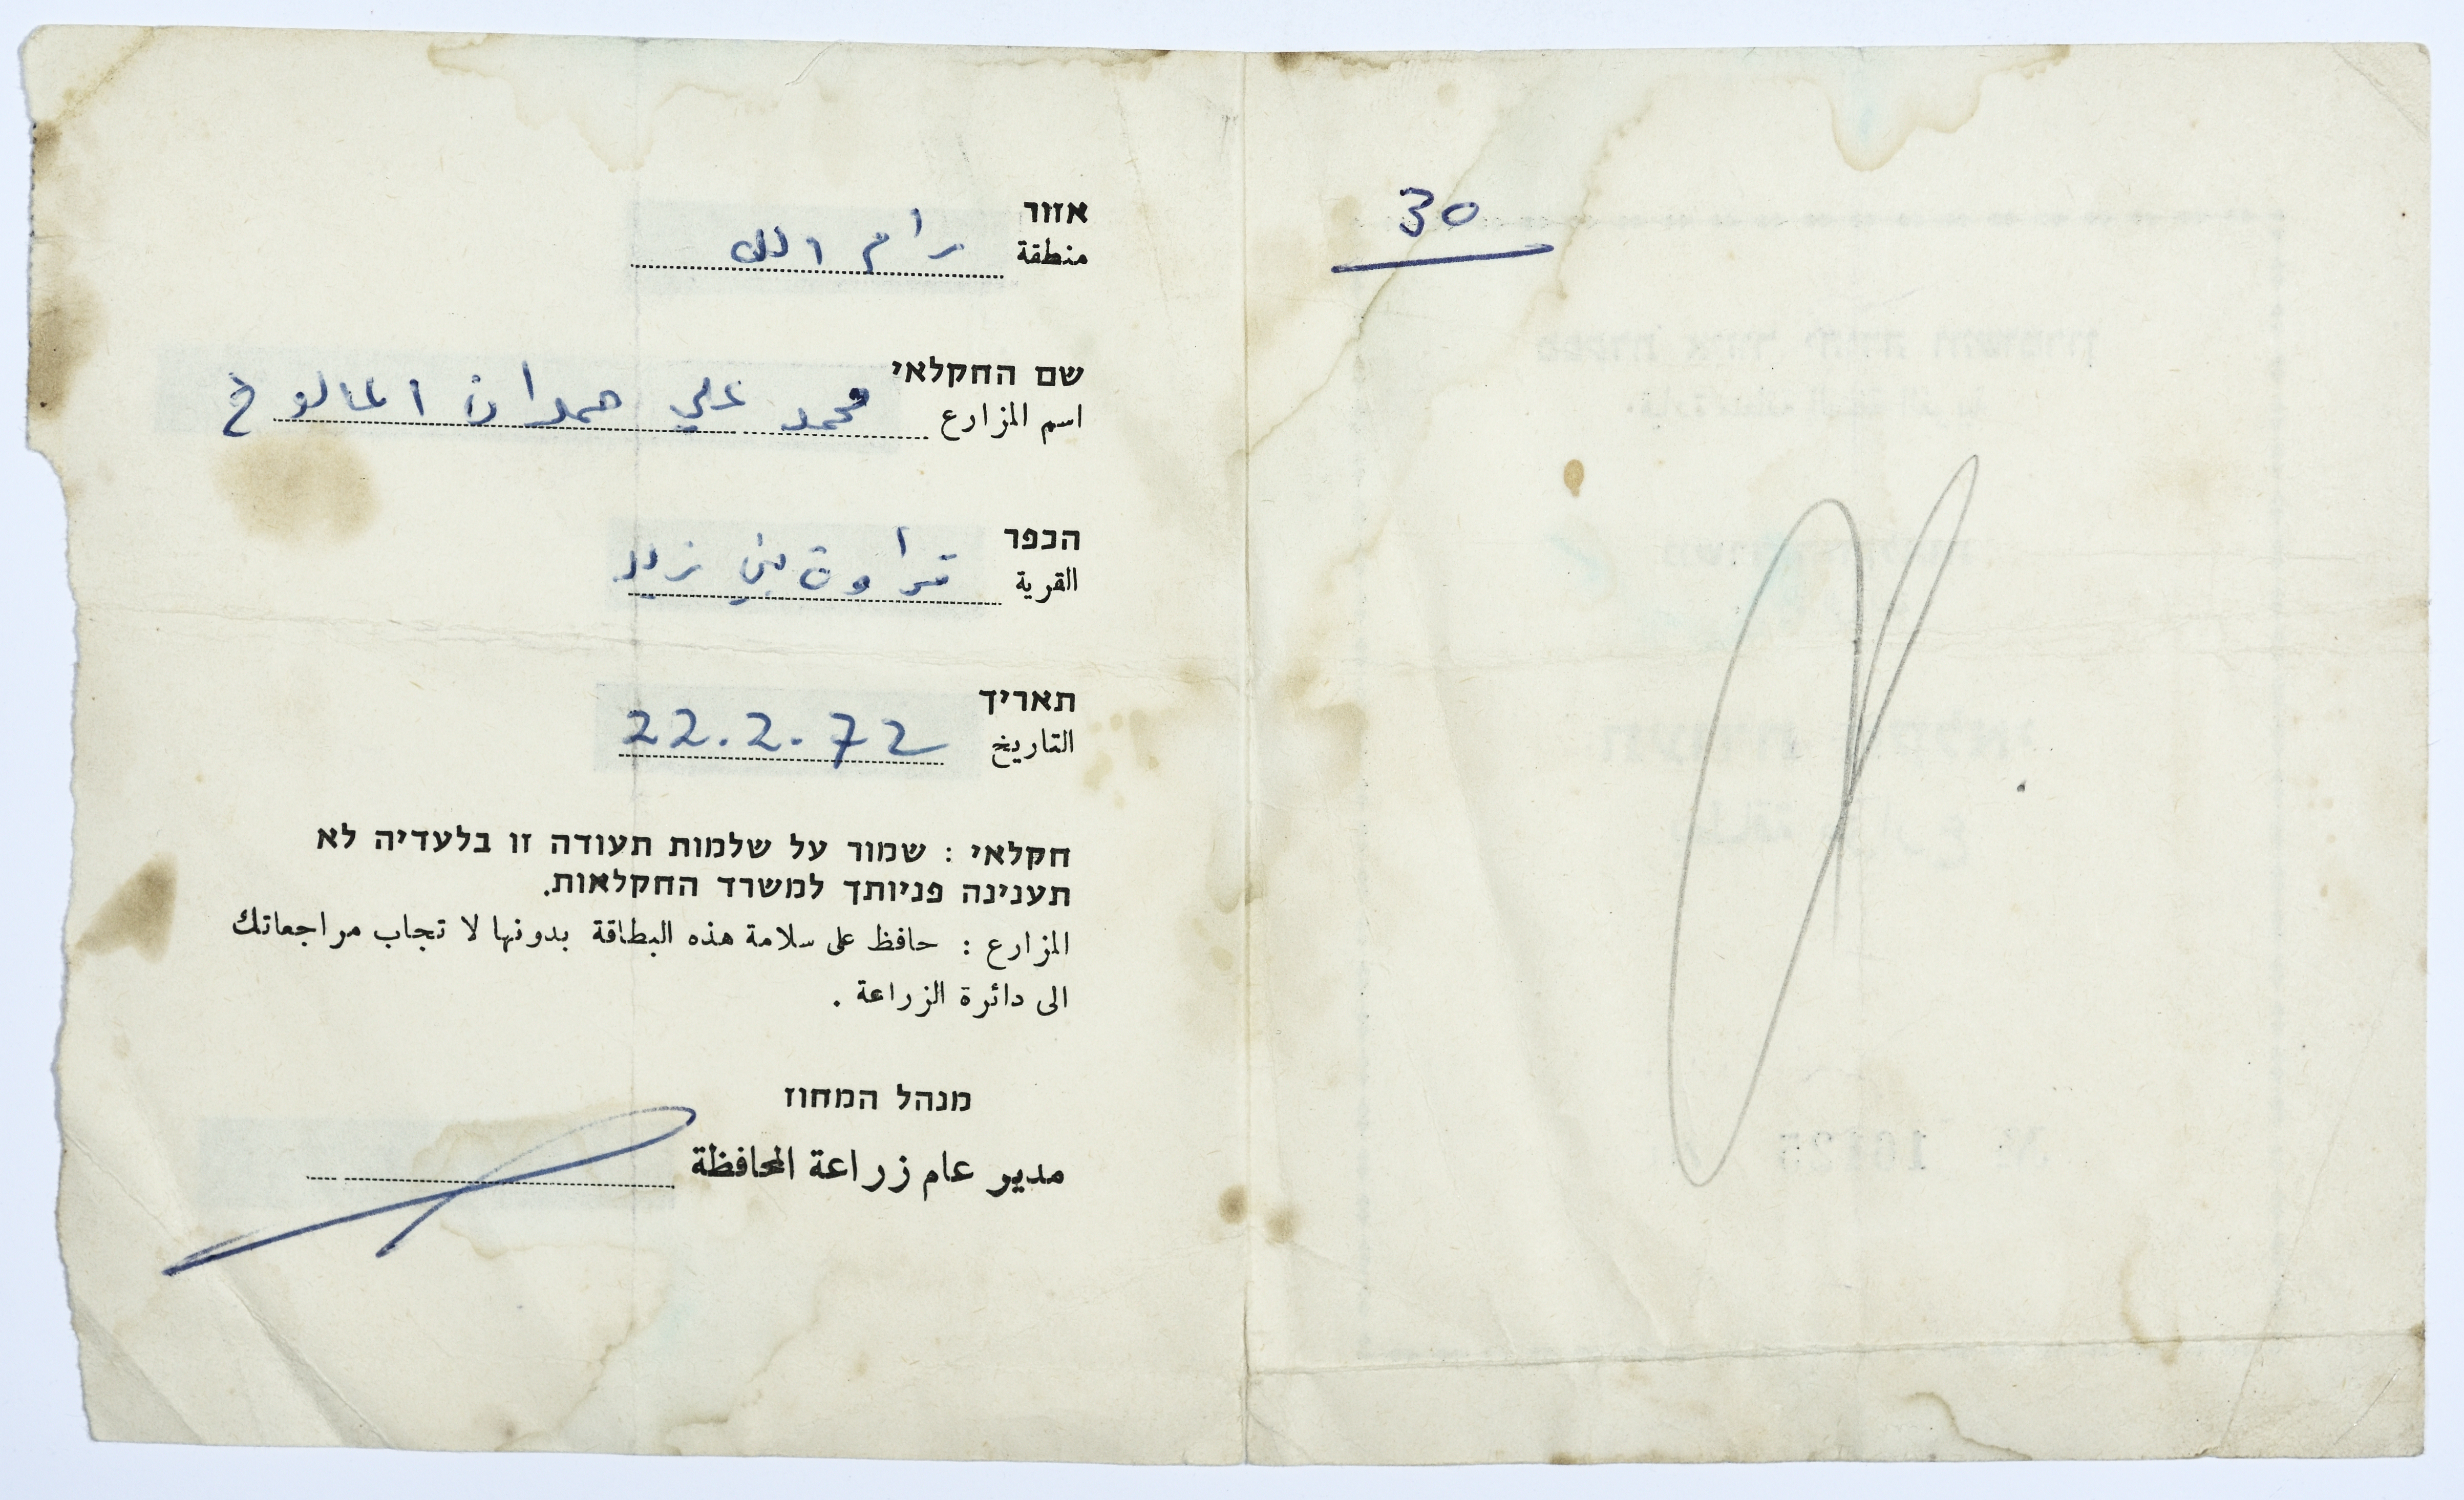 אזור
منطقة رام الله
שם החקלאי
اسم المزارع محمد علي حمدان
הכפר
القرية قراوة بني زيد
תאריך
التاريخ 22.2.72
חקלאי : שמור על שלמות תעודה זו בלעדיה לא
תענינה פניותך למשרד החקלאות.
المزارع : حافظ على سلامة هذه البطاقة بدونها لا تجاب مراجعاتك
الى دائرة الزراعة .
מנהל המחוז
مدير عام زراعة المحافظة
30